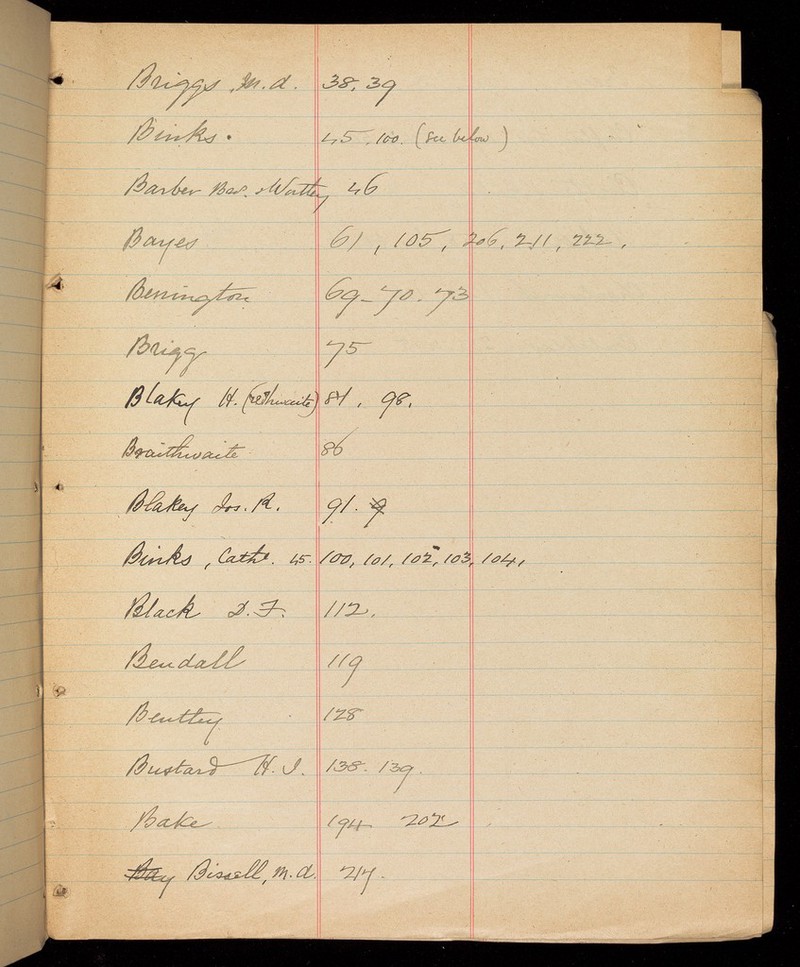 Briggs, M.d. 38, 39
Binks. 45, 100. (see below)
Barber 46
Bayes 61, 105, 206, 211, 222.
Bennington 69-70. 73
Brigg 75
Blakey H. 84, 98.
Braithwaite 86
Blakey Jos. R. 91. 9
Binks, Cathe. 45. 100, 101, 102, 103, 104,
Black D. F. 112.
Bendall 119
Benttey 128
Bustard H. I. 138. 139.
Bake 194 202
Bay Bissell, M.d. 217.